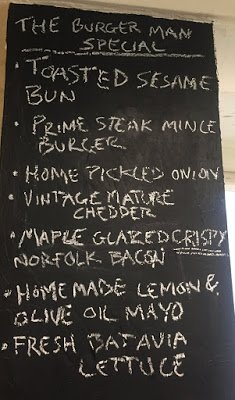 THE BURGER MAN
SPECIAL
• TOASTED SESAME
BUN
• PRIME STEAK MINCE
BURGER
• HOME PICKLED ONION
• VINTAGE MATURE
CHEDDER
• MAPLE GLAZED CRISPY
NORFOLK BACON
• HOME MADE LEMON &
OLIVE OIL MAYO
• FRESH BATAVIA
LETTUCE